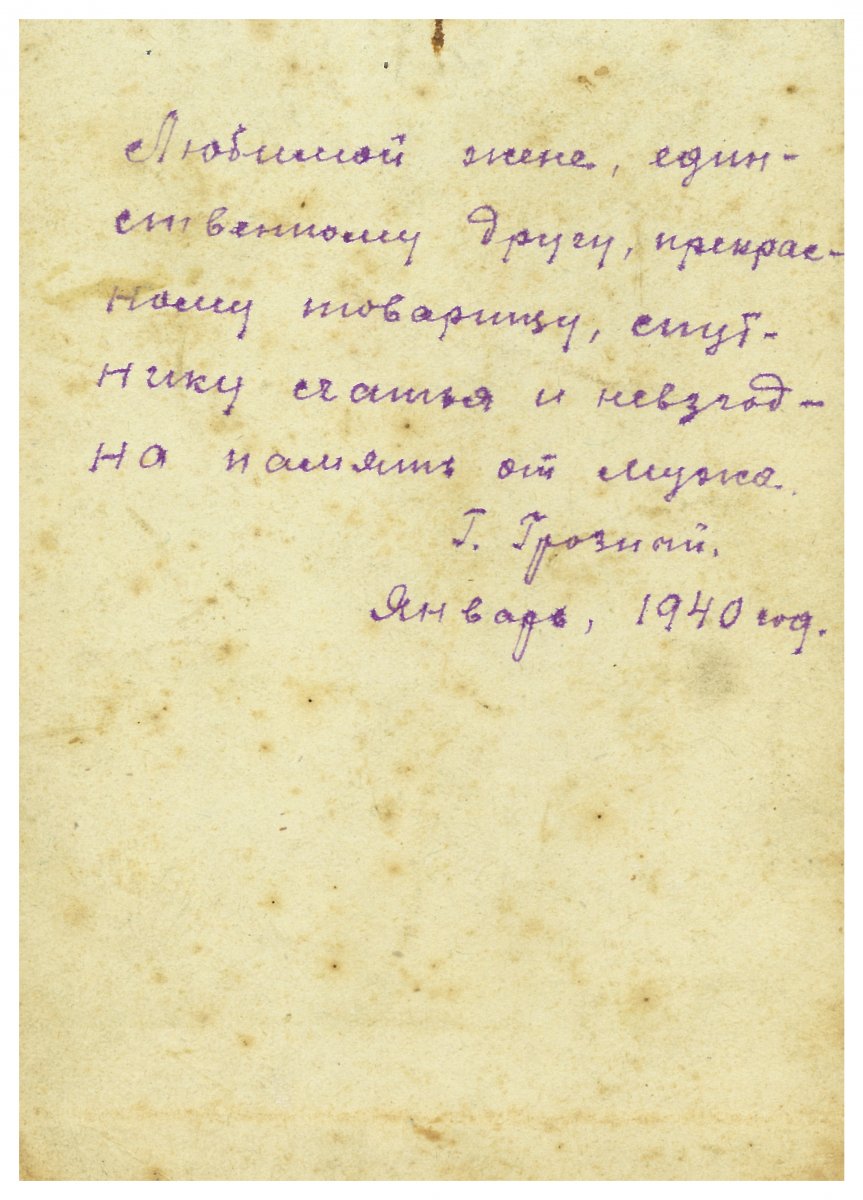 Любимой жене, един-
ственному другу, прекрас-
ному товарищу, спут-
нику счатья и невзгод-
на память от мужа.
Г. Грозный.
Январь, 1940 год.